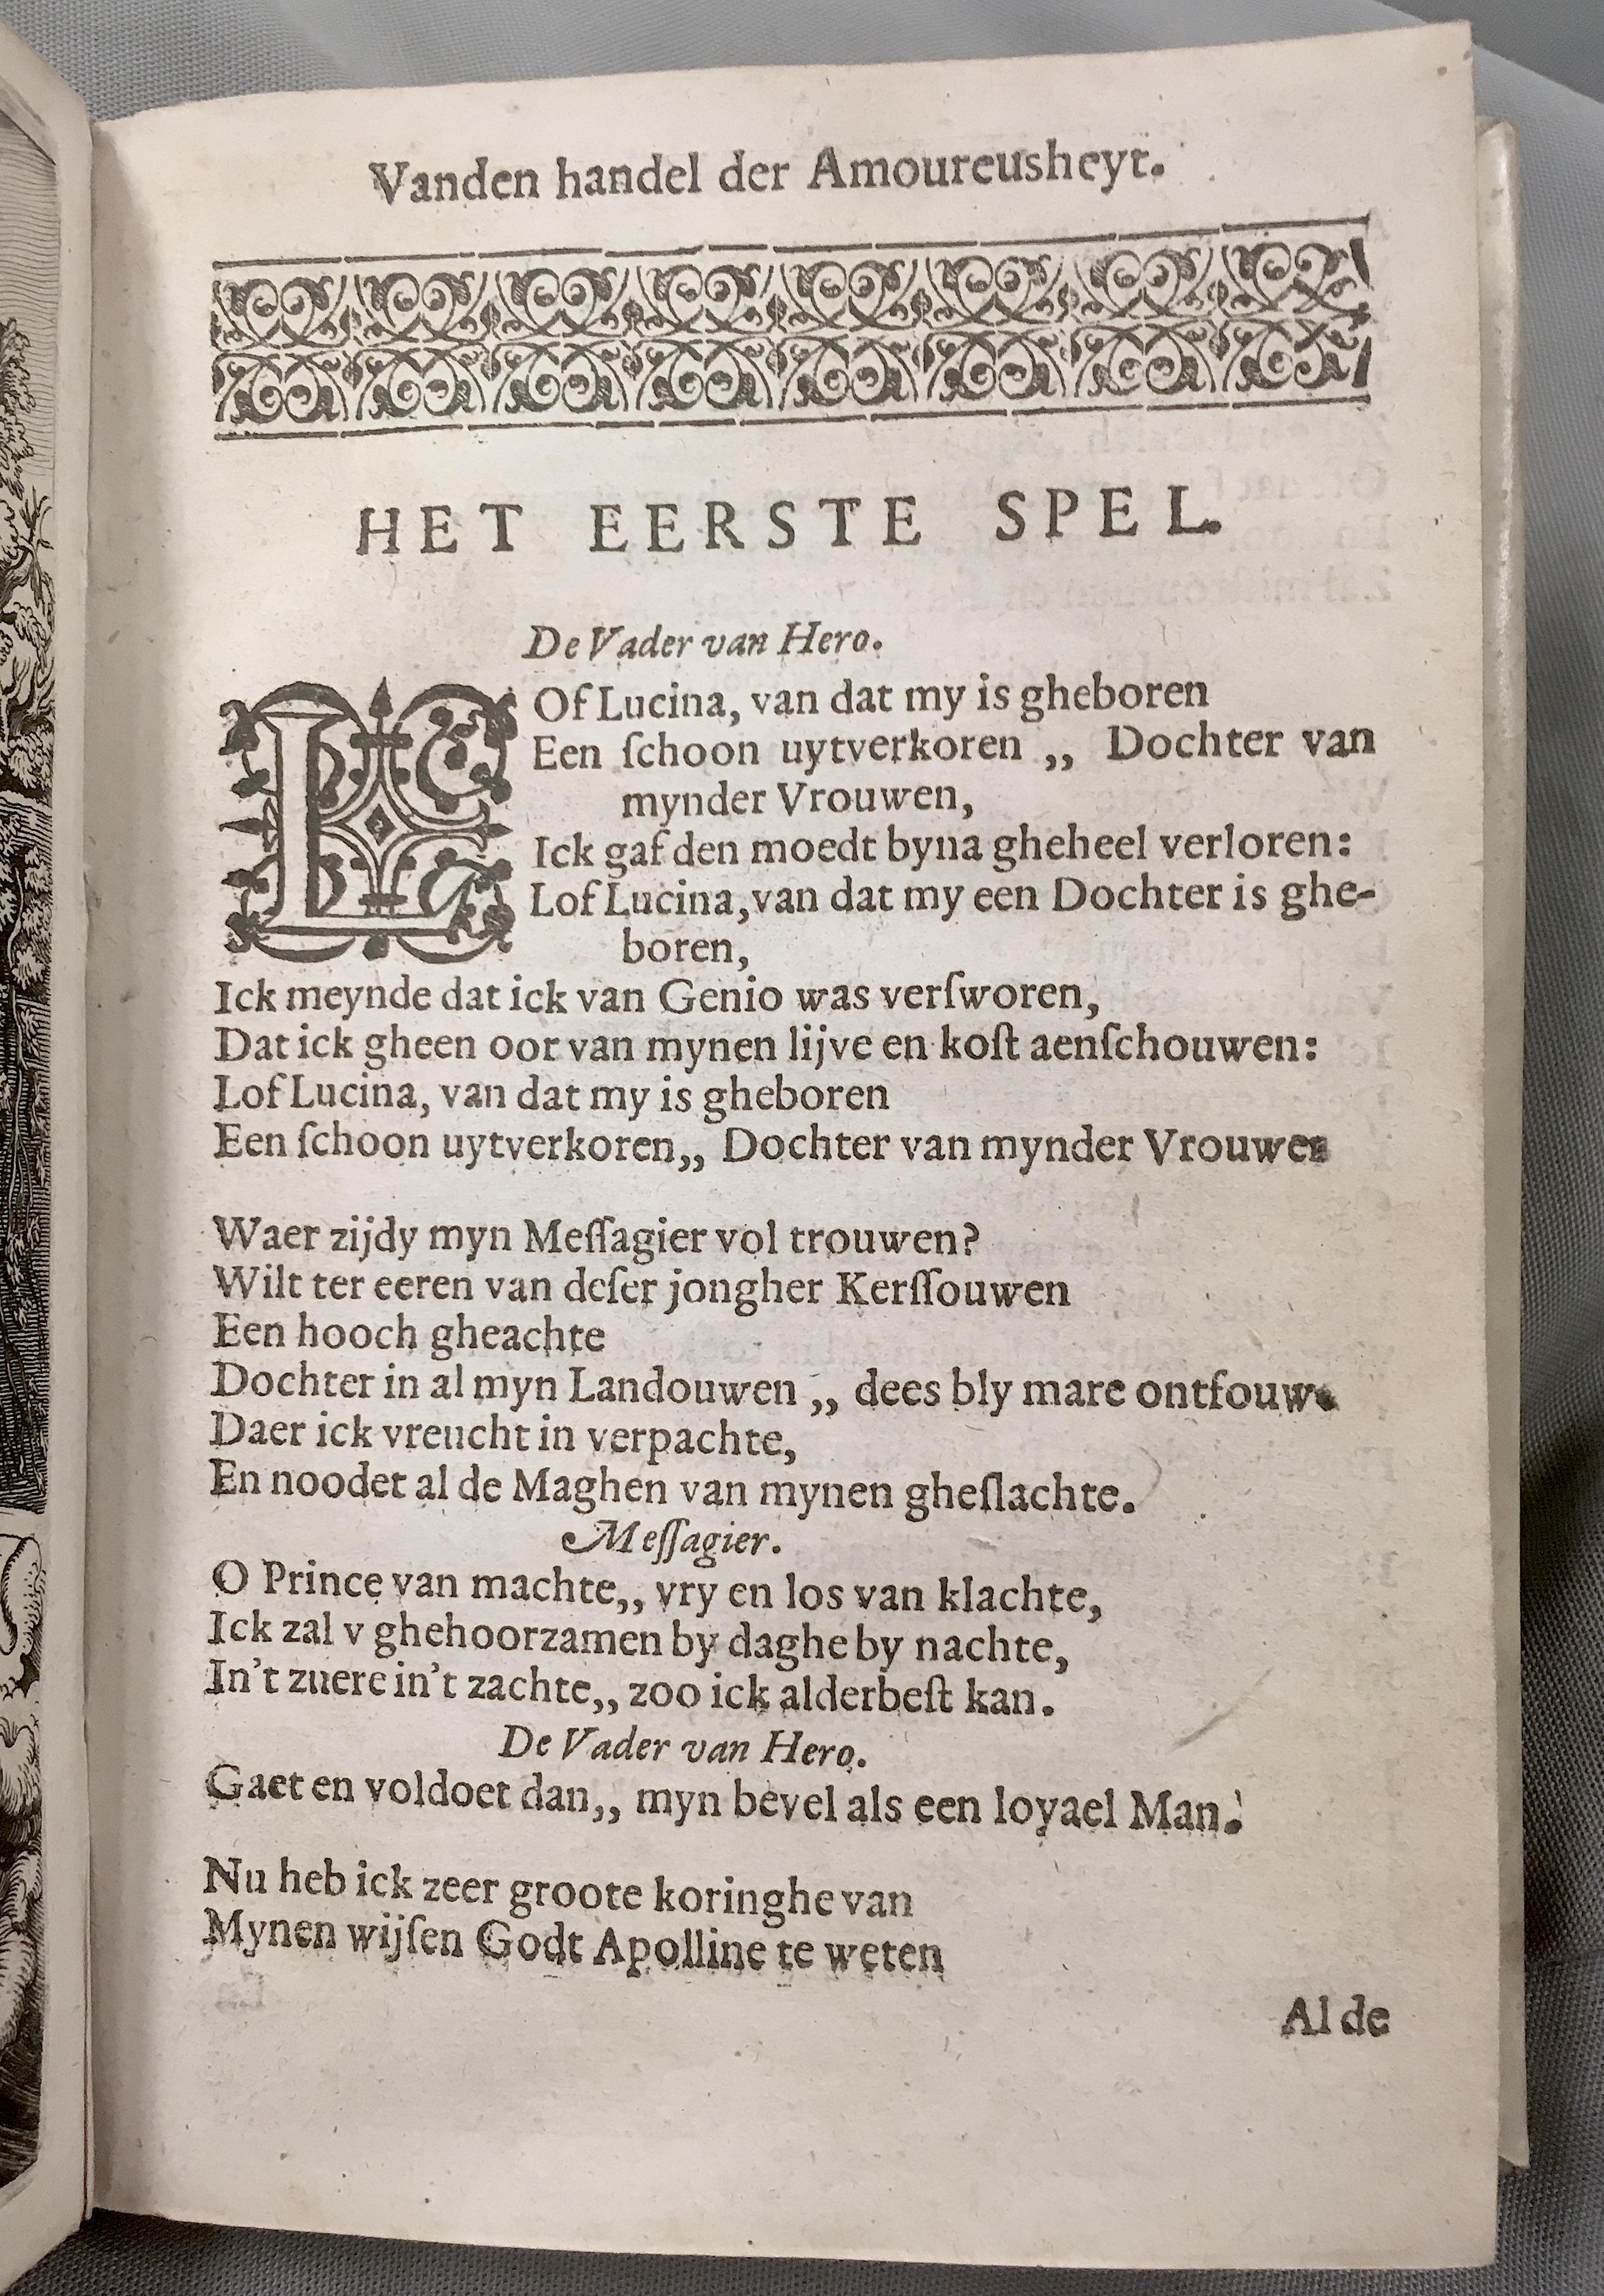 Vanden handel der Amoureusheyt.
HET EERSTE SPEL.
De Vader van Hero.
LOf Lucina, van dat my is gheboren
Een ſchoon uytverkoren ,, Dochter van
mynder Vrouwen,
Ick gaf den moedt byna gheheel verloren:
Lof Lucina, van dat my een Dochter is ghe-
boren,
Ick meynde dat ick van Genio was verſworen,
Dat ick gheen oor van mynen lijve en koſt aenſchouwen:
Lof Lucina, van dat my is gheboren
Een ſchoon uytverkoren,, Dochter van mynder Vrouwen
Waer zijdy myn Meſſagier vol trouwen?
Wilt ter eeren van deſer jongher Kerſſouwen
Een hooch gheachte
Dochter in al myn Landouwen ,, dees bly mare ontfouw.
Daer ick vreucht in verpachte,
En noodet al de Maghen van mynen gheſlachte.
Meſſagier.
O Prince van machte,, vry en los van klachte,
Ick zal v ghehoorzamen by daghe by nachte,
In't zuere in't zachte,, zoo ick alderbeſt kan.
De Vader van Hero.
Gaet en voldoet dan,, myn bevel als een loyael Man.
Nu heb ick zeer groote koringhe van
Mynen wijſen Godt Apolline te weten
Al de